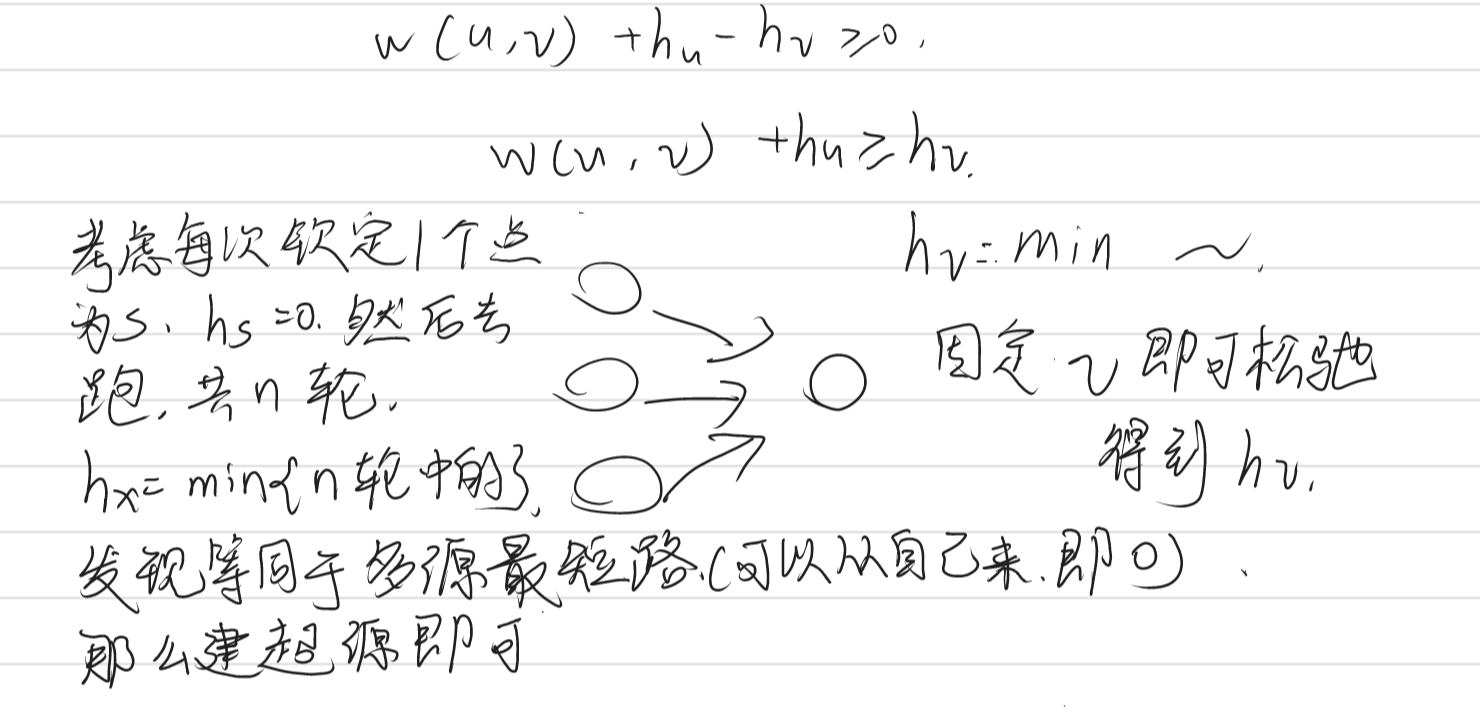 w(u,v) +hu - hv ≥0.
w(u,v) +hu ≥ hv.
考虑每次钦定1个点
为S、hs=0. 然后去
跑,共n轮.
hx= min{n轮中的}.
hv = min ~.
固定v即可松弛
得到hv.
发现等同于多源最短路.(可以从自己来.即0).
那么建超源即可